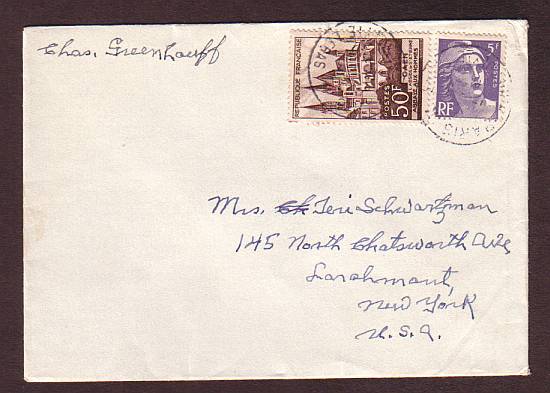 Chas. Greenhouff
REPUBLIQUE FRANÇAISE
POSTES
50F
CAEN
5F
POSTES
RF
PARIS
Mrs. Teri Schwartzman
145 North Chatsworth Ave
Larchmont,
New York
U.S.A.